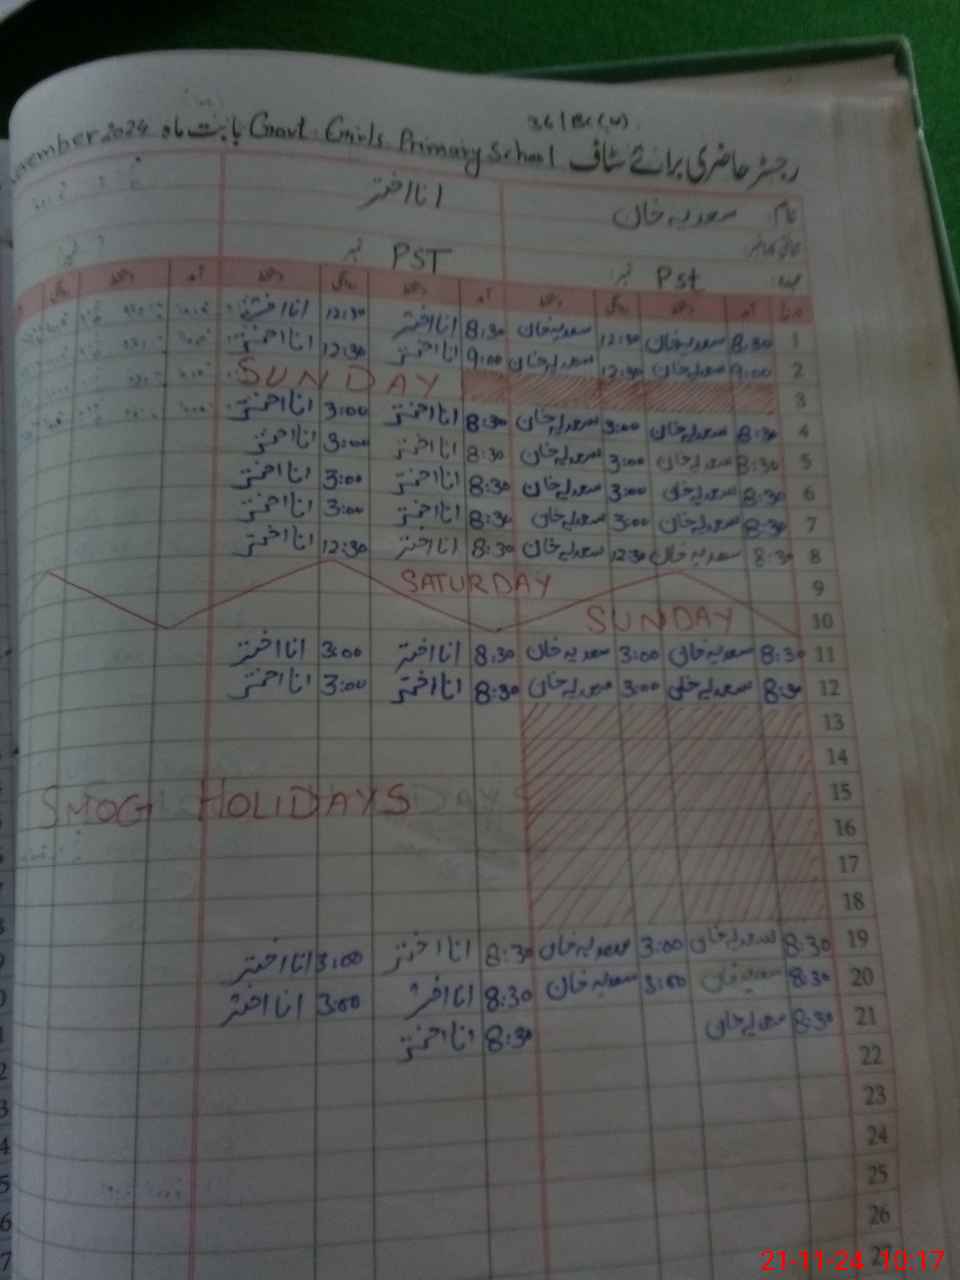 36/BC(W).
رجسٹر حاضری برائے سٹاف Govt. Girls. Primary School بابت ماہ November 2024
نام سعدیہ خان انا اختر
عہدہ Pst نمبر PST نمبر
تاریخ آمد دستخط روانگی دستخط آمد دستخط روانگی دستخط آمد دستخط روانگی
1 8:30 سعدیہ خان 12:30 سعدیہ خان 8:30 انا اختر 12:30 انا اختر
2 9:00 سعدیہ خان 12:30 سعدیہ خان 9:00 انا اختر 12:30 انا اختر
3 SUNDAY
4 8:30 سعدیہ خان 3:00 سعدیہ خان 8:30 انا اختر 3:00 انا اختر
5 8:30 سعدیہ خان 3:00 سعدیہ خان 8:30 انا اختر 3:00 انا اختر
6 8:30 سعدیہ خان 3:00 سعدیہ خان 8:30 انا اختر 3:00 انا اختر
7 8:30 سعدیہ خان 3:00 سعدیہ خان 8:30 انا اختر 3:00 انا اختر
8 8:30 سعدیہ خان 12:30 سعدیہ خان 8:30 انا اختر 12:30 انا اختر
9 SATURDAY
10 SUNDAY
11 8:30 سعدیہ خان 3:00 سعدیہ خان 8:30 انا اختر 3:00 انا اختر
12 8:30 سعدیہ خان 3:00 سعدیہ خان 8:30 انا اختر 3:00 انا اختر
13
14
15 SMOG HOLIDAYS
16
17
18
19 8:30 سعدیہ خان 3:00 سعدیہ خان 8:30 انا اختر 3:00 انا اختر
20 8:30 سعدیہ خان 3:00 سعدیہ خان 8:30 انا اختر 3:00 انا اختر
21 8:30 سعدیہ خان 8:30 انا اختر
22
23
24
25
26
27
21-11-24 10:17